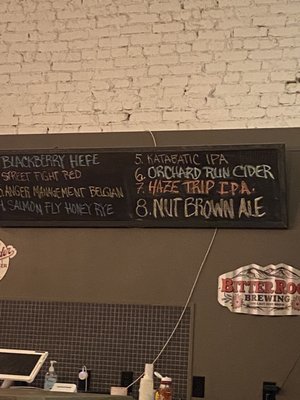 BLACKBERRY HEFE
STREET FIGHT RED
ANGER MANAGEMENT BELGIAN
SALMON FLY HONEY RYE
5. KATABATIC IPA
6. ORCHARD RUN CIDER
7. HAZE TRIP IPA.
8. NUT BROWN ALE
BITTER ROO
BREWING